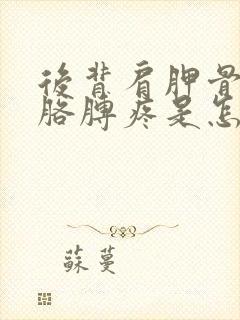 後背肩胛骨
胳膊疼是怎
蘇蔓